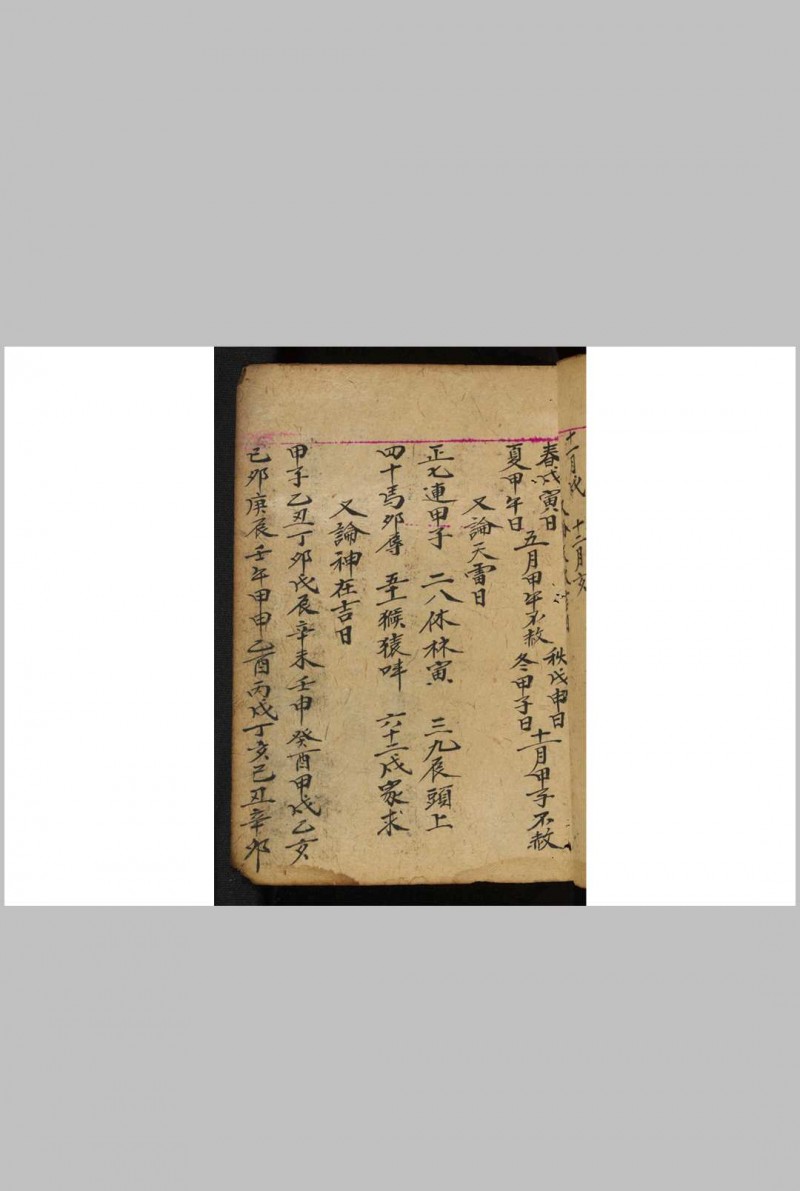 十一月戌　十二月亥
春戊寅日　秩戊申日
夏甲午日　五月甲午不赦　冬甲子日　十一月甲子不赦
又論天雷日
正七連甲子　二八休林寅　三九辰頭上
四十馬卯辱　五十一猴猿　六十二戌家求
又論神在吉日
甲子乙丑丁卯戊辰辛未壬申癸酉甲戌乙亥
己卯庚辰壬午甲申乙酉丙戌丁亥己丑辛卯